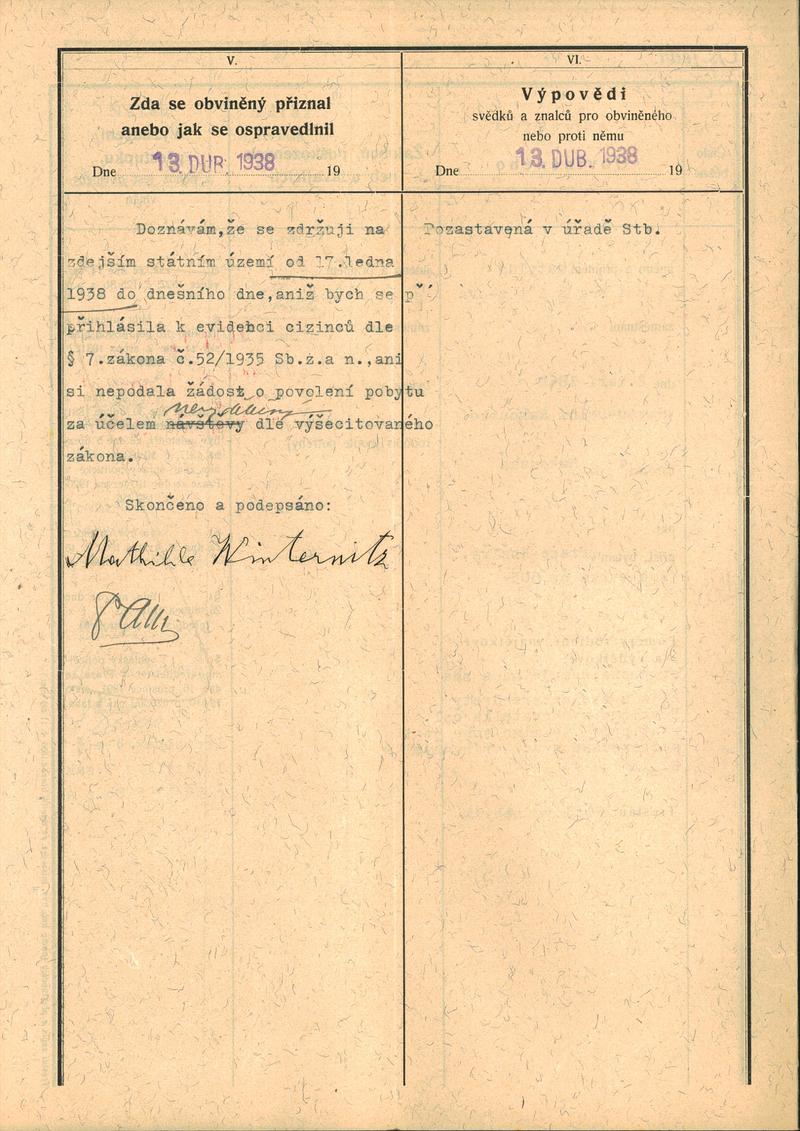 V.
Zda se obviněný přiznal
anebo jak se ospravedlnil
Dne 13. DUB. 1938 19
Doznávám,že se zdržuji na
zdejším státním území od 17.ledna
1938 do dnešního dne,aniž bych se př
přihlásila k evidenci cizinců dle
§ 7.zákona č.52/1935 Sb.z.a n.,ani
si nepodala žádost o povolení pobytu
za účelem návštevy dle výšecitovaného
zákona.
Skončeno a podepsáno:
Mathilde Winternitz
VI.
Výpovědi
svědků a znalců pro obviněného
nebo proti němu
Dne 13. DUB. 1938 19
Pozastavená v úřadě Stb.